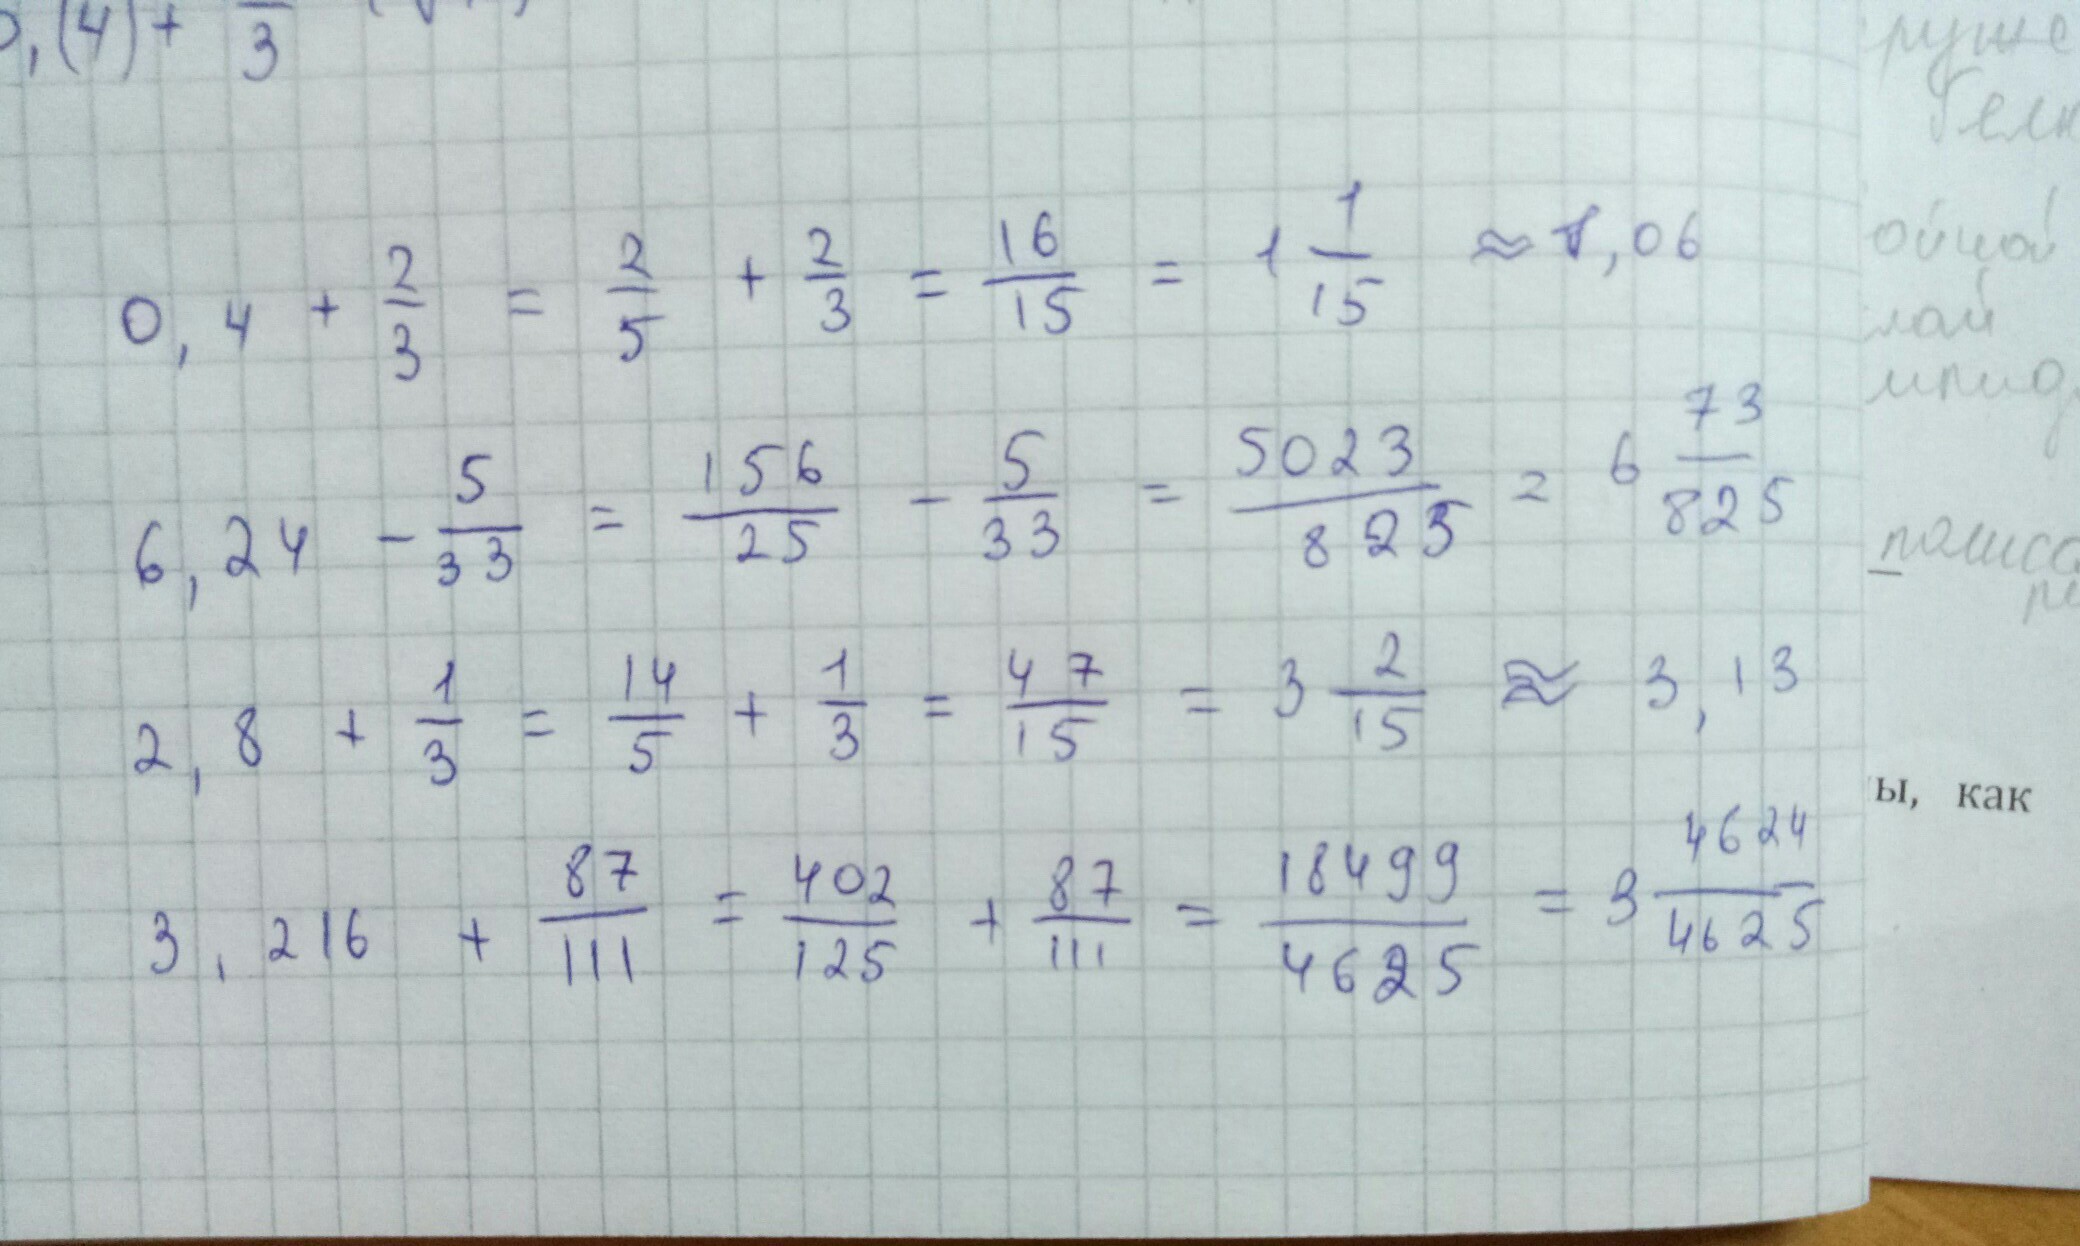 0,(4) + /3
0,4 + 2/3 = 2/5 + 2/3 = 16/15 = 1 1/15 ≈ 1,06
6,24 - 5/33 = 156/25 - 5/33 = 5023/825 = 6 73/825
2,8 + 1/3 = 14/5 + 1/3 = 47/15 = 3 2/15 ≈ 3,13
3,216 + 87/111 = 402/125 + 87/111 = 18499/4625 = 3 4624/4625
ы, как